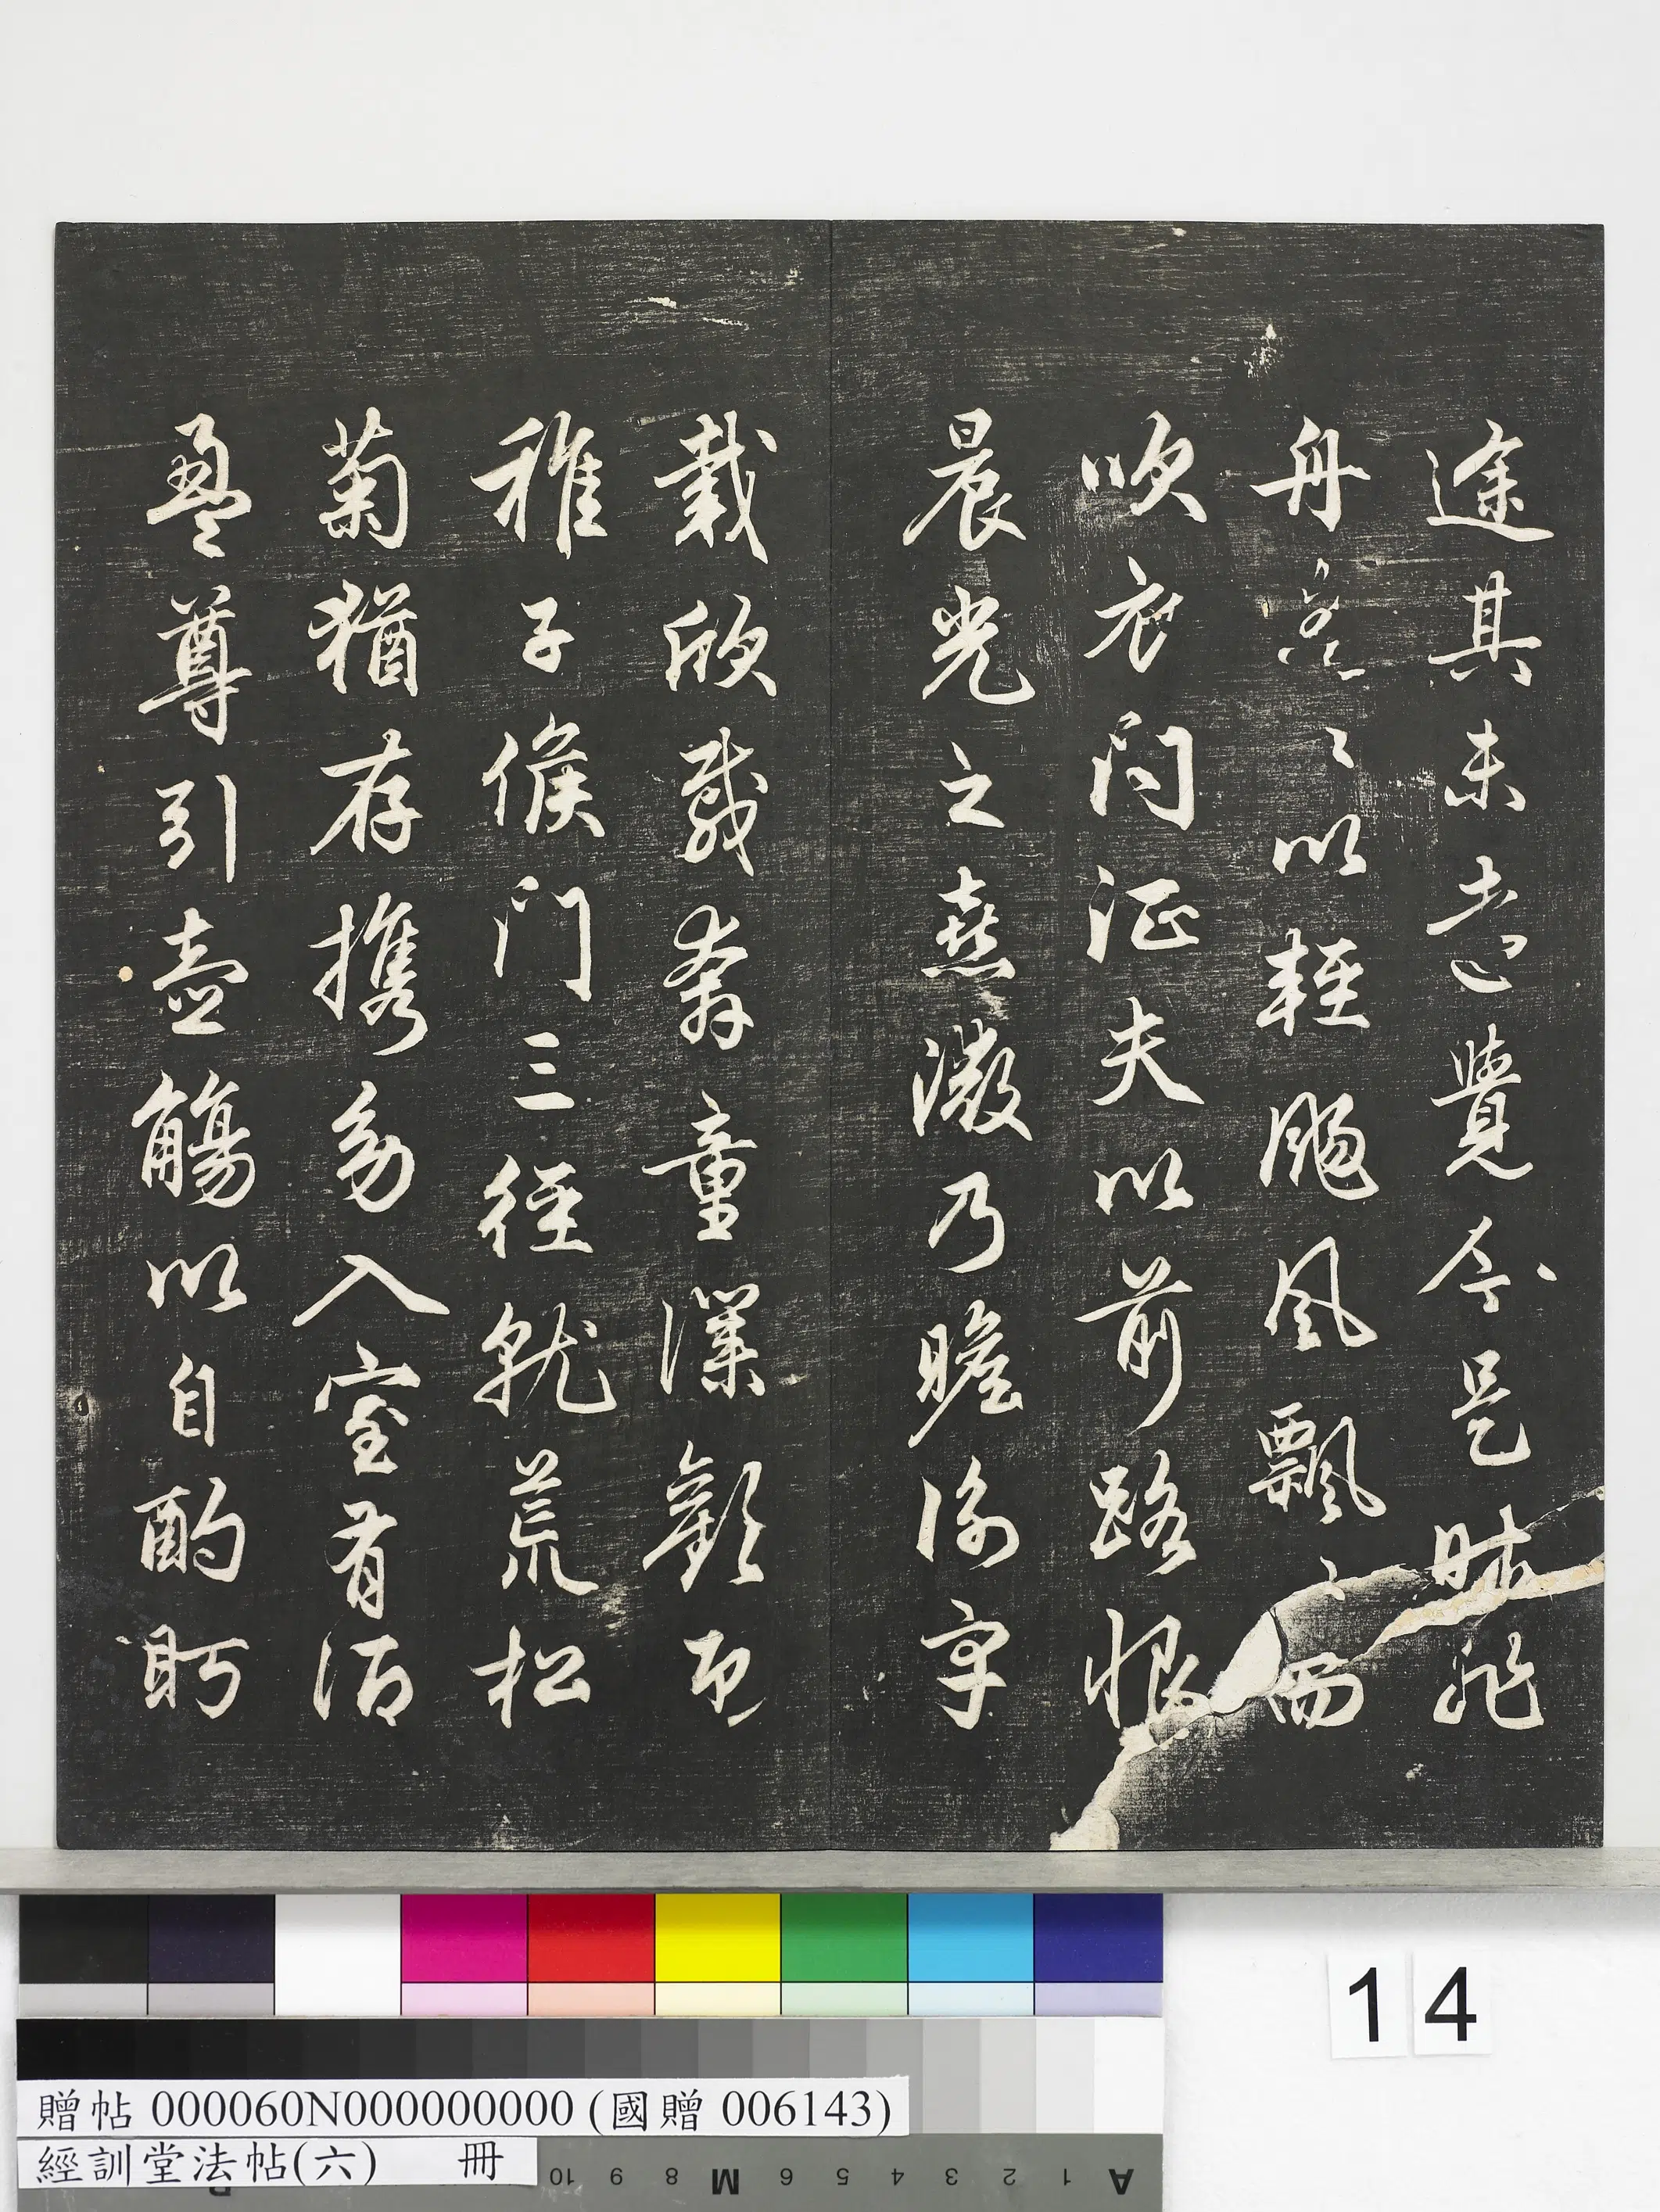 途其未遠覺今是昨非
舟遙々以輕颺風飄々而
吹衣問征夫以前路恨
晨光之熹微乃瞻衡宇
載欣載奔童僕歡迎
稚子候門三徑就荒松
菊猶存携幼入室有酒
盈尊引壺觴以自酌眄
14
贈帖 000060N000000000 (國贈 006143)
經訓堂法帖(六) 冊
10 9 8 M 6 5 4 3 2 1 A